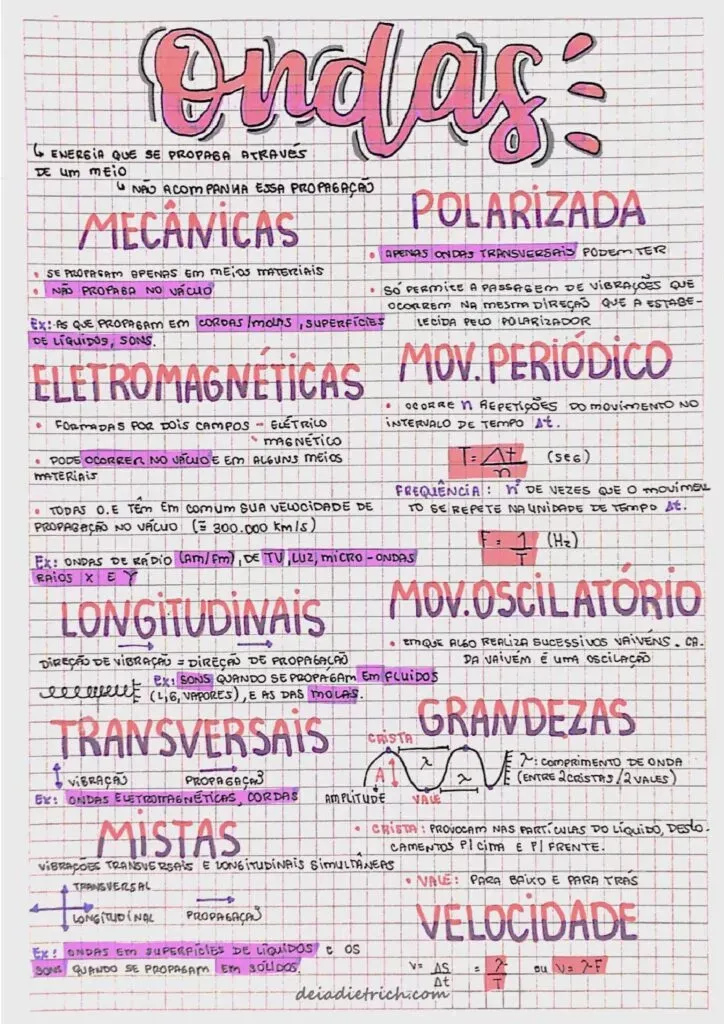 Ondas
↳ ENERGIA QUE SE PROPAGA ATRAVÉS
DE UM MEIO
↳ NÃO ACOMPANHA ESSA PROPAGAÇÃO
MECÂNICAS
• SE PROPAGAM APENAS EM MEIOS MATERIAIS
• NÃO PROPAGA NO VÁCUO
Ex: AS QUE PROPAGAM EM CORDAS/MOLAS, SUPERFÍCIES
DE LÍQUIDOS, SONS.
ELETROMAGNÉTICAS
• FORMADAS POR DOIS CAMPOS - ELÉTRICO
MAGNÉTICO
• PODE OCORRER NO VÁCUO E EM ALGUNS MEIOS
MATERIAIS
• TODAS O.E TÊM EM COMUM SUA VELOCIDADE DE
PROPAGAÇÃO NO VÁCUO (≅ 300.000 Km/s)
Ex: ONDAS DE RÁDIO (Am/Fm), DE TV, LUZ, MICRO-ONDAS
RAIOS X E γ
LONGITUDINAIS
DIREÇÃO DE VIBRAÇÃO = DIREÇÃO DE PROPAGAÇÃO
Ex: SONS QUANDO SE PROPAGAM EM FLUIDOS
(L, G, VAPORES), E AS DAS MOLAS.
TRANSVERSAIS
VIBRAÇÃO PROPAGAÇÃO
Ex: ONDAS ELETROMAGNÉTICAS, CORDAS
MISTAS
VIBRAÇÕES TRANSVERSAIS E LONGITUDINAIS SIMULTÂNEAS
TRANSVERSAL
LONGITUDINAL PROPAGAÇÃO
Ex: ONDAS EM SUPERFÍCIES DE LÍQUIDOS E OS
SONS QUANDO SE PROPAGAM EM SÓLIDOS.
POLARIZADA
• APENAS ONDAS TRANSVERSAIS PODEM TER
• SÓ PERMITE A PASSAGEM DE VIBRAÇÕES QUE
OCORREM NA MESMA DIREÇÃO QUE A ESTABE-
LECIDA PELO POLARIZADOR
MOV. PERIÓDICO
• OCORRE n REPETIÇÕES DO MOVIMENTO NO
INTERVALO DE TEMPO Δt.
T = Δt/n (SEG)
FREQUÊNCIA: nº DE VEZES QUE O MOVIMEN
TO SE REPETE NA UNIDADE DE TEMPO Δt.
F = 1/T (Hz)
MOV. OSCILATÓRIO
• EM QUE ALGO REALIZA SUCESSIVOS VAIVÉNS. CA.
DA VAIVÉM É UMA OSCILAÇÃO
GRANDEZAS
CRISTA
λ
A
λ
AMPLITUDE VALE
λ: COMPRIMENTO DE ONDA
(ENTRE 2 CRISTAS/2 VALES)
• CRISTA: PROVOCAM NAS PARTÍCULAS DO LÍQUIDO, DESLO-
CAMENTOS P/ CIMA E P/ FRENTE.
• VALE: PARA BAIXO E PARA TRÁS
VELOCIDADE
V = ΔS/Δt = λ/T ou V = λ·F
deiadietrich.com